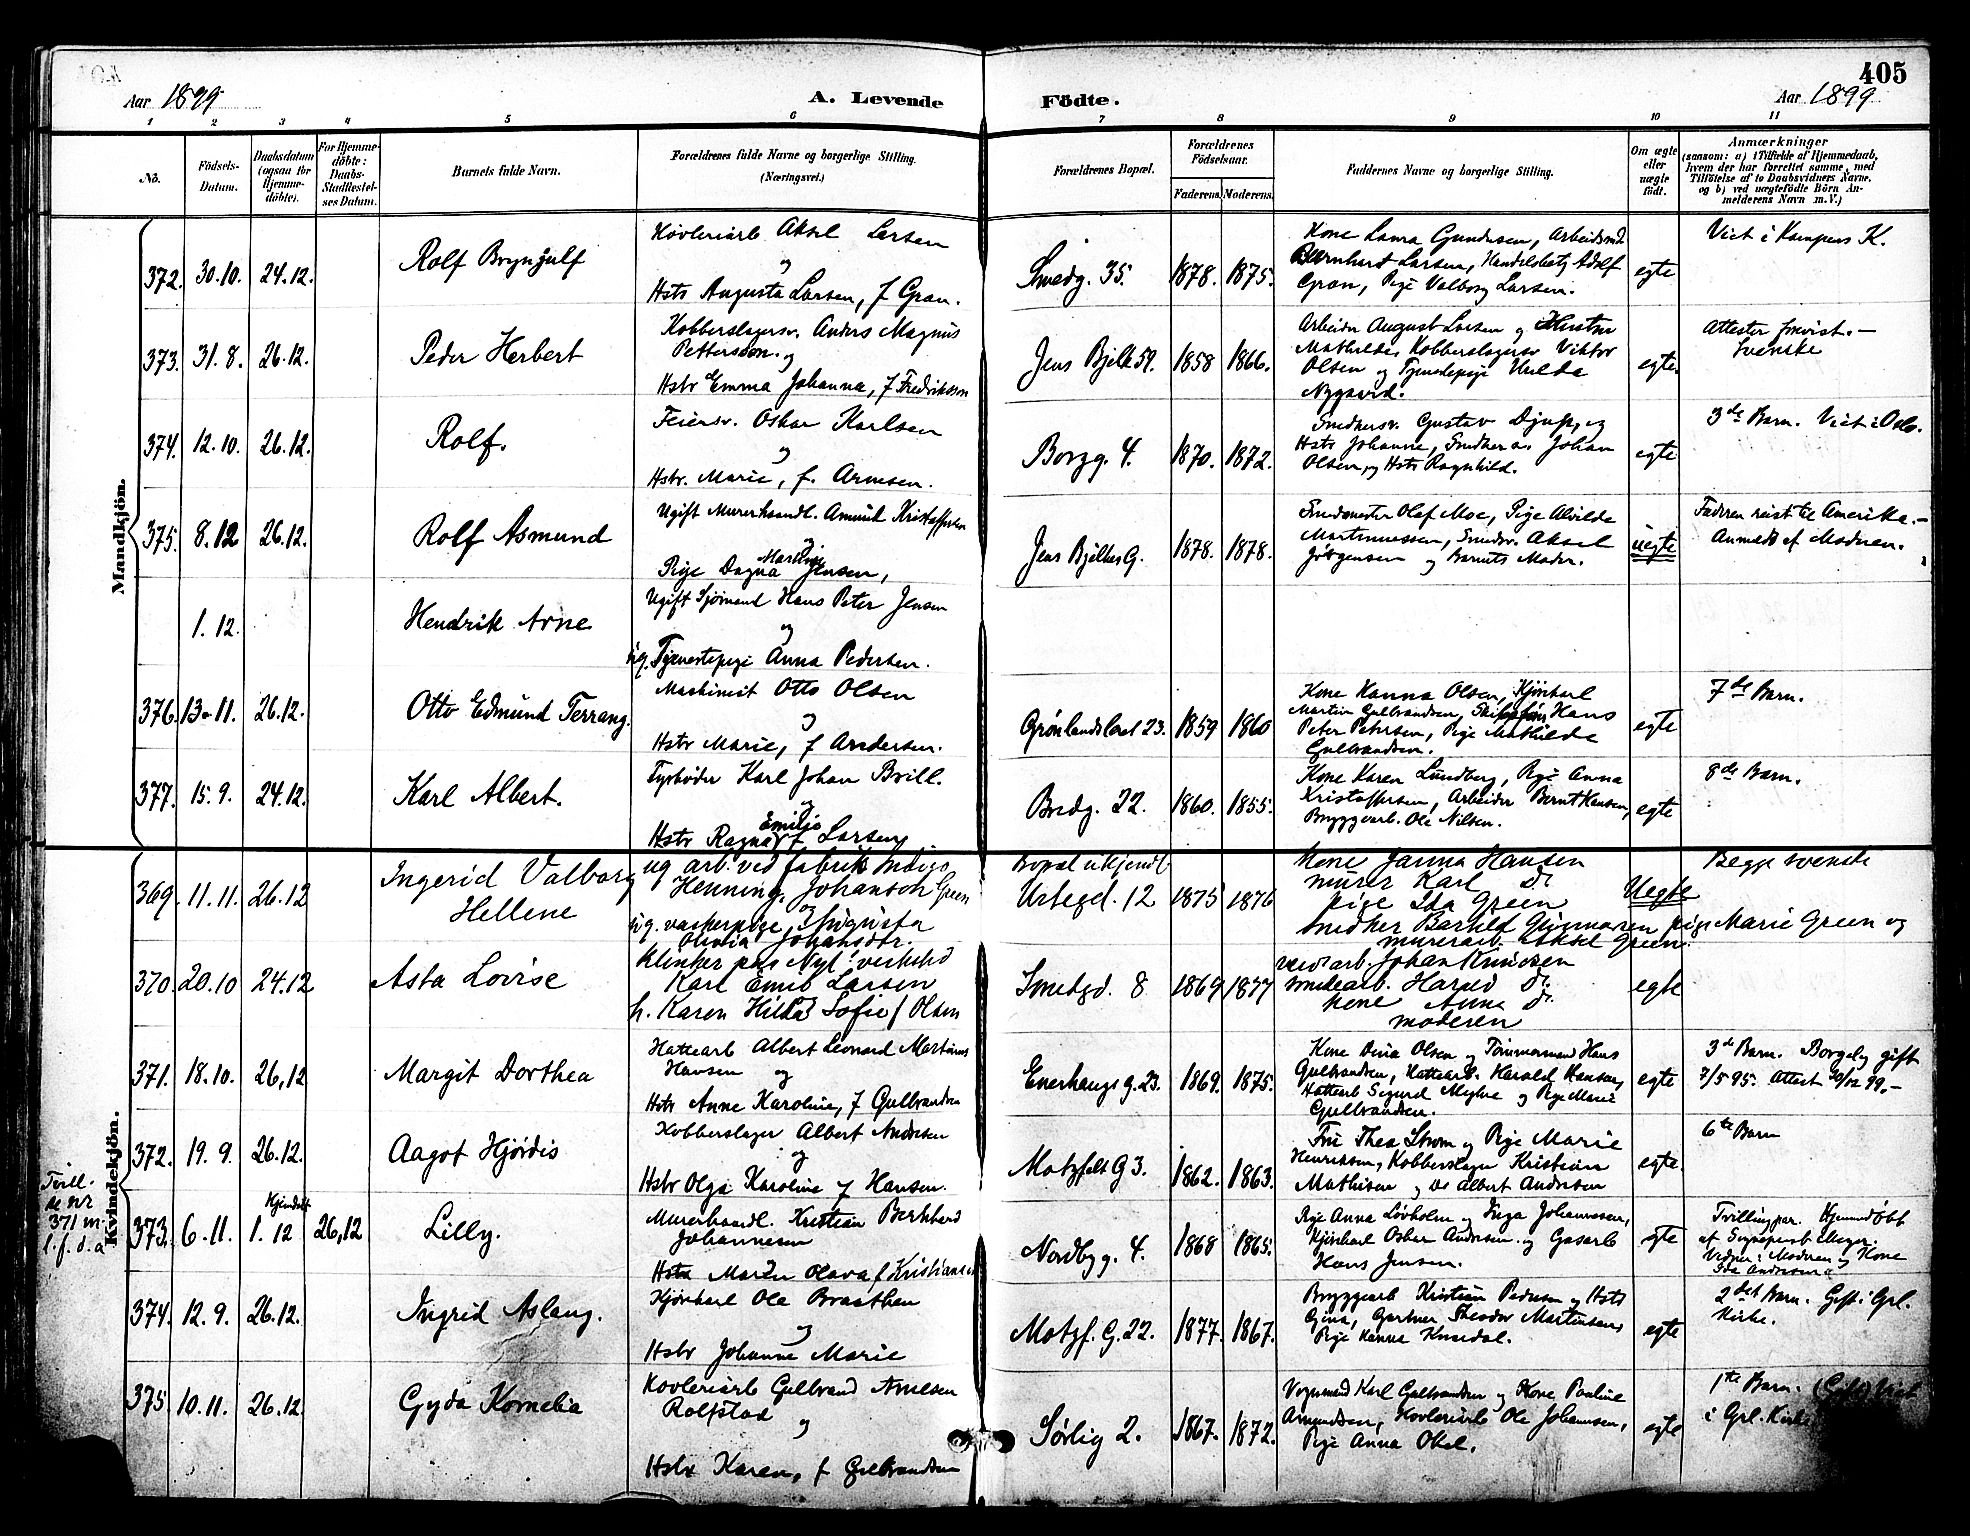 405
Aar 1899
A. Levende
Födte.
Aar 1899
1 2 3 4 5 6 7 8 9 10 11
No.
Födsels-
Datum.
Daabsdatum
(ogsaa for
Hjemme-
döbte).
For Hjemme-
döbte:
Daabs-
Stadfæstel-
ses Datum.
Barnets fulde Navn.
Forældrenes fulde Navne og borgerlige Stilling.
(Næringsvei.)
Forældrenes Bopæl.
Forældrenes
Födselsaar.
Faderens. Moderens.
Faddernes Navne og borgerlige Stilling.
Om ægte
eller
uægte
födt.
Anmærkninger
(saasom: a) i Tilfælde af Hjemmedaab,
hvem der har forrettet samme, med
Tilföielse af to Daabsvidners Navne,
og b) ved uægtefödte Börn An-
melderens Navn m. V.)
Mandkjön.
372. 30.10. 24.12.
Rolf Brynjulf
Høvleriarb Aksel Larsen
og
Hstr Augusta Larsen, f Gran.
Smedg. 35. 1878. 1875.
Kone Laura Gundersen, Arbeidsmd
Bernhard Larsen, Handelsbetj Adolf
Gran, Pige Valborg Larsen.
egte
Viet i Kampens K.
373. 31.8. 26.12.
Peder Herbert
Kobberslagersv. Anders Magnus
Pettersson. og
Hstr Emma Johanna, f Fredriksson
Jens Bjelk 59. 1858 1866.
Arbeider August Larsen og Hustru
Mathilde, Kobberslagersv Viktor
Olsen og Tjenestepige Hulda
Nygaard.
egte.
Attester forevist. —
Svenske
374. 12.10. 26.12.
Rolf.
Feiersv. Oskar Karlsen
og
Hstr. Marie, f. Arnesen.
Borgg. 4. 1870. 1872.
Snedkersv. Gustav Djup, og
Hstr Johanne, Snedkersv. Johan
Olsen, og Hstr Ragnhild.
egte
3de Barn. Viet i Oslo.
375. 8.12 26.12.
Rolf Asmund
Ugift Murerhaandl. Amund Kristoffersen
og
Pige Dagna Mathilde Jensen,
Jens Bjelkes G. 1878. 1878.
Smedmester Olaf Moe, Pige Alvilde
Martinussen, Smedsv. Aksel
Jörgensen og Barnets Moder.
uegte
Faderen reist til Amerika. —
Anmeldt af Moderen.
1.12.
Hendrik Arne
Ugift Sjömand Hans Peter Jensen
og
ug. Tjenestepige Anna Pedersen.
376. 13.11. 26.12.
Otto Edmund Terrang.
Maskinist Otto Olsen
og
Hstr Marie, f Andersen.
Grønlandsleret 23. 1859 1860
Kone Hanna Olsen, Kjörekarl
Martin Gulbrandsen, Hans
Peter Petersen, Pige Mathilde
Gulbrandsen.
egte
7de Barn.
377. 15.9. 24.12.
Karl Albert.
Fyrbøder Karl Johan Brill.
og
Hstr Ragna Emilie f Larsen
Bredg. 22. 1860. 1855.
Kone Karen Lundberg, Pige Anna
Kristoffersen, Arbeider Bernt Hansen,
Bryggearb. Ole Nilsen.
egte
8de Barn.
Kvindekjön.
369. 11.11. 26.12
Ingerid Valborg
Hellene
ug arb. ved fabrik
Henning Johanson Green
og
ug. vaskerpige Augusta
Olivia Johansdtr.
Bopæl ukjendt
Urtegd. 12 1875 1876
Kone Janna Hansen
murer Karl Do
pige Ida Green
Snedker Bartilf Gunnarsen pige Marie Green og
murerarb. Aksel Green.
Uegte
Begge svenske
370. 20.10 24.12
Asta Lovise
Klinker paa Nyl. verksted
Karl Emil Larsen
h. Karen Hilda Sofie f Olsen
Smedgd. 8 1869 1877
verdsarb. Johan Knudsen
smedearb. Harald Do
kone Anna Do
moderen
egte
371. 18.10. 26,12
Margit Dorthea
Hattearb Albert Leonard Martinus
Hansen og
Hstr Anne Karoline, f Gulbrandsen
Enerhaugs g. 23. 1869. 1875.
Kone Dina Olsen og Tømmermand Hans
Gulbrandsen, Hattearb. Harald Hansen,
Hattearb Sigurd Myhre og Pige Marie
Gulbrandsen.
egte
3de Barn. Borgelig gift
7/5 95. Attest 30/12 99. —
372. 19.9. 26.12.
Aagot Hjördis
Kobberslager Albert Andersen
og
Hstr Olga Karoline f Hansen.
Motzfelt G 3. 1862. 1863.
Fru Thea Strøm og Pige Marie
Henriksen, Kobberslager Kristian
Mathisen og Do Albert Andersen
egte.
6te Barn
Tvill.
se nr
371 m.
l. f. d. a
373. 6.11. Hjemdöbt 1.12 26,12
Lilly.
Murerhaandl. Kristian Bernhard
Johannesen
Hstr Maren Olava f Kristiansen
Nordbyg. 4. 1868 1865.
Pige Anna Lövholm og Inga Johannesen,
Kjørekarl Oskar Andersen. og Gasarb
Hans Jensen.
egte
Tvillingpar. Hjemmedöbt
af Sogneprest Meyer.
Vidner: Moderen og Kone
Ida Andersen
374. 12.9. 26.12.
Ingrid Aslaug.
Kjørekarl Ole Braathen
og
Hstr Johanne Marie
Motzf. G. 22. 1877. 1867.
Bryggearb Kristian Pedersen og Hstr
Gina, Gartner Theodor Martinsen,
Pige Hanna Knardal.
egte
2det Barn. Gift i Grl.
Kirke.
375 10.11. 26.12.
Gyda Kornelia
Høvleriarb Gulbrand Arnesen
Rolfstad og
Hstr Karen, f Gulbrandsen
Sørlig 2. 1867. 1872.
Vognmand Karl Gulbrandsen og Kone Pauline
Amundsen, Høvleriarb Ole Johannsen,
Pige Anna Okel.
egte
1te Barn. (Gift) Viet
i Grl. Kirke